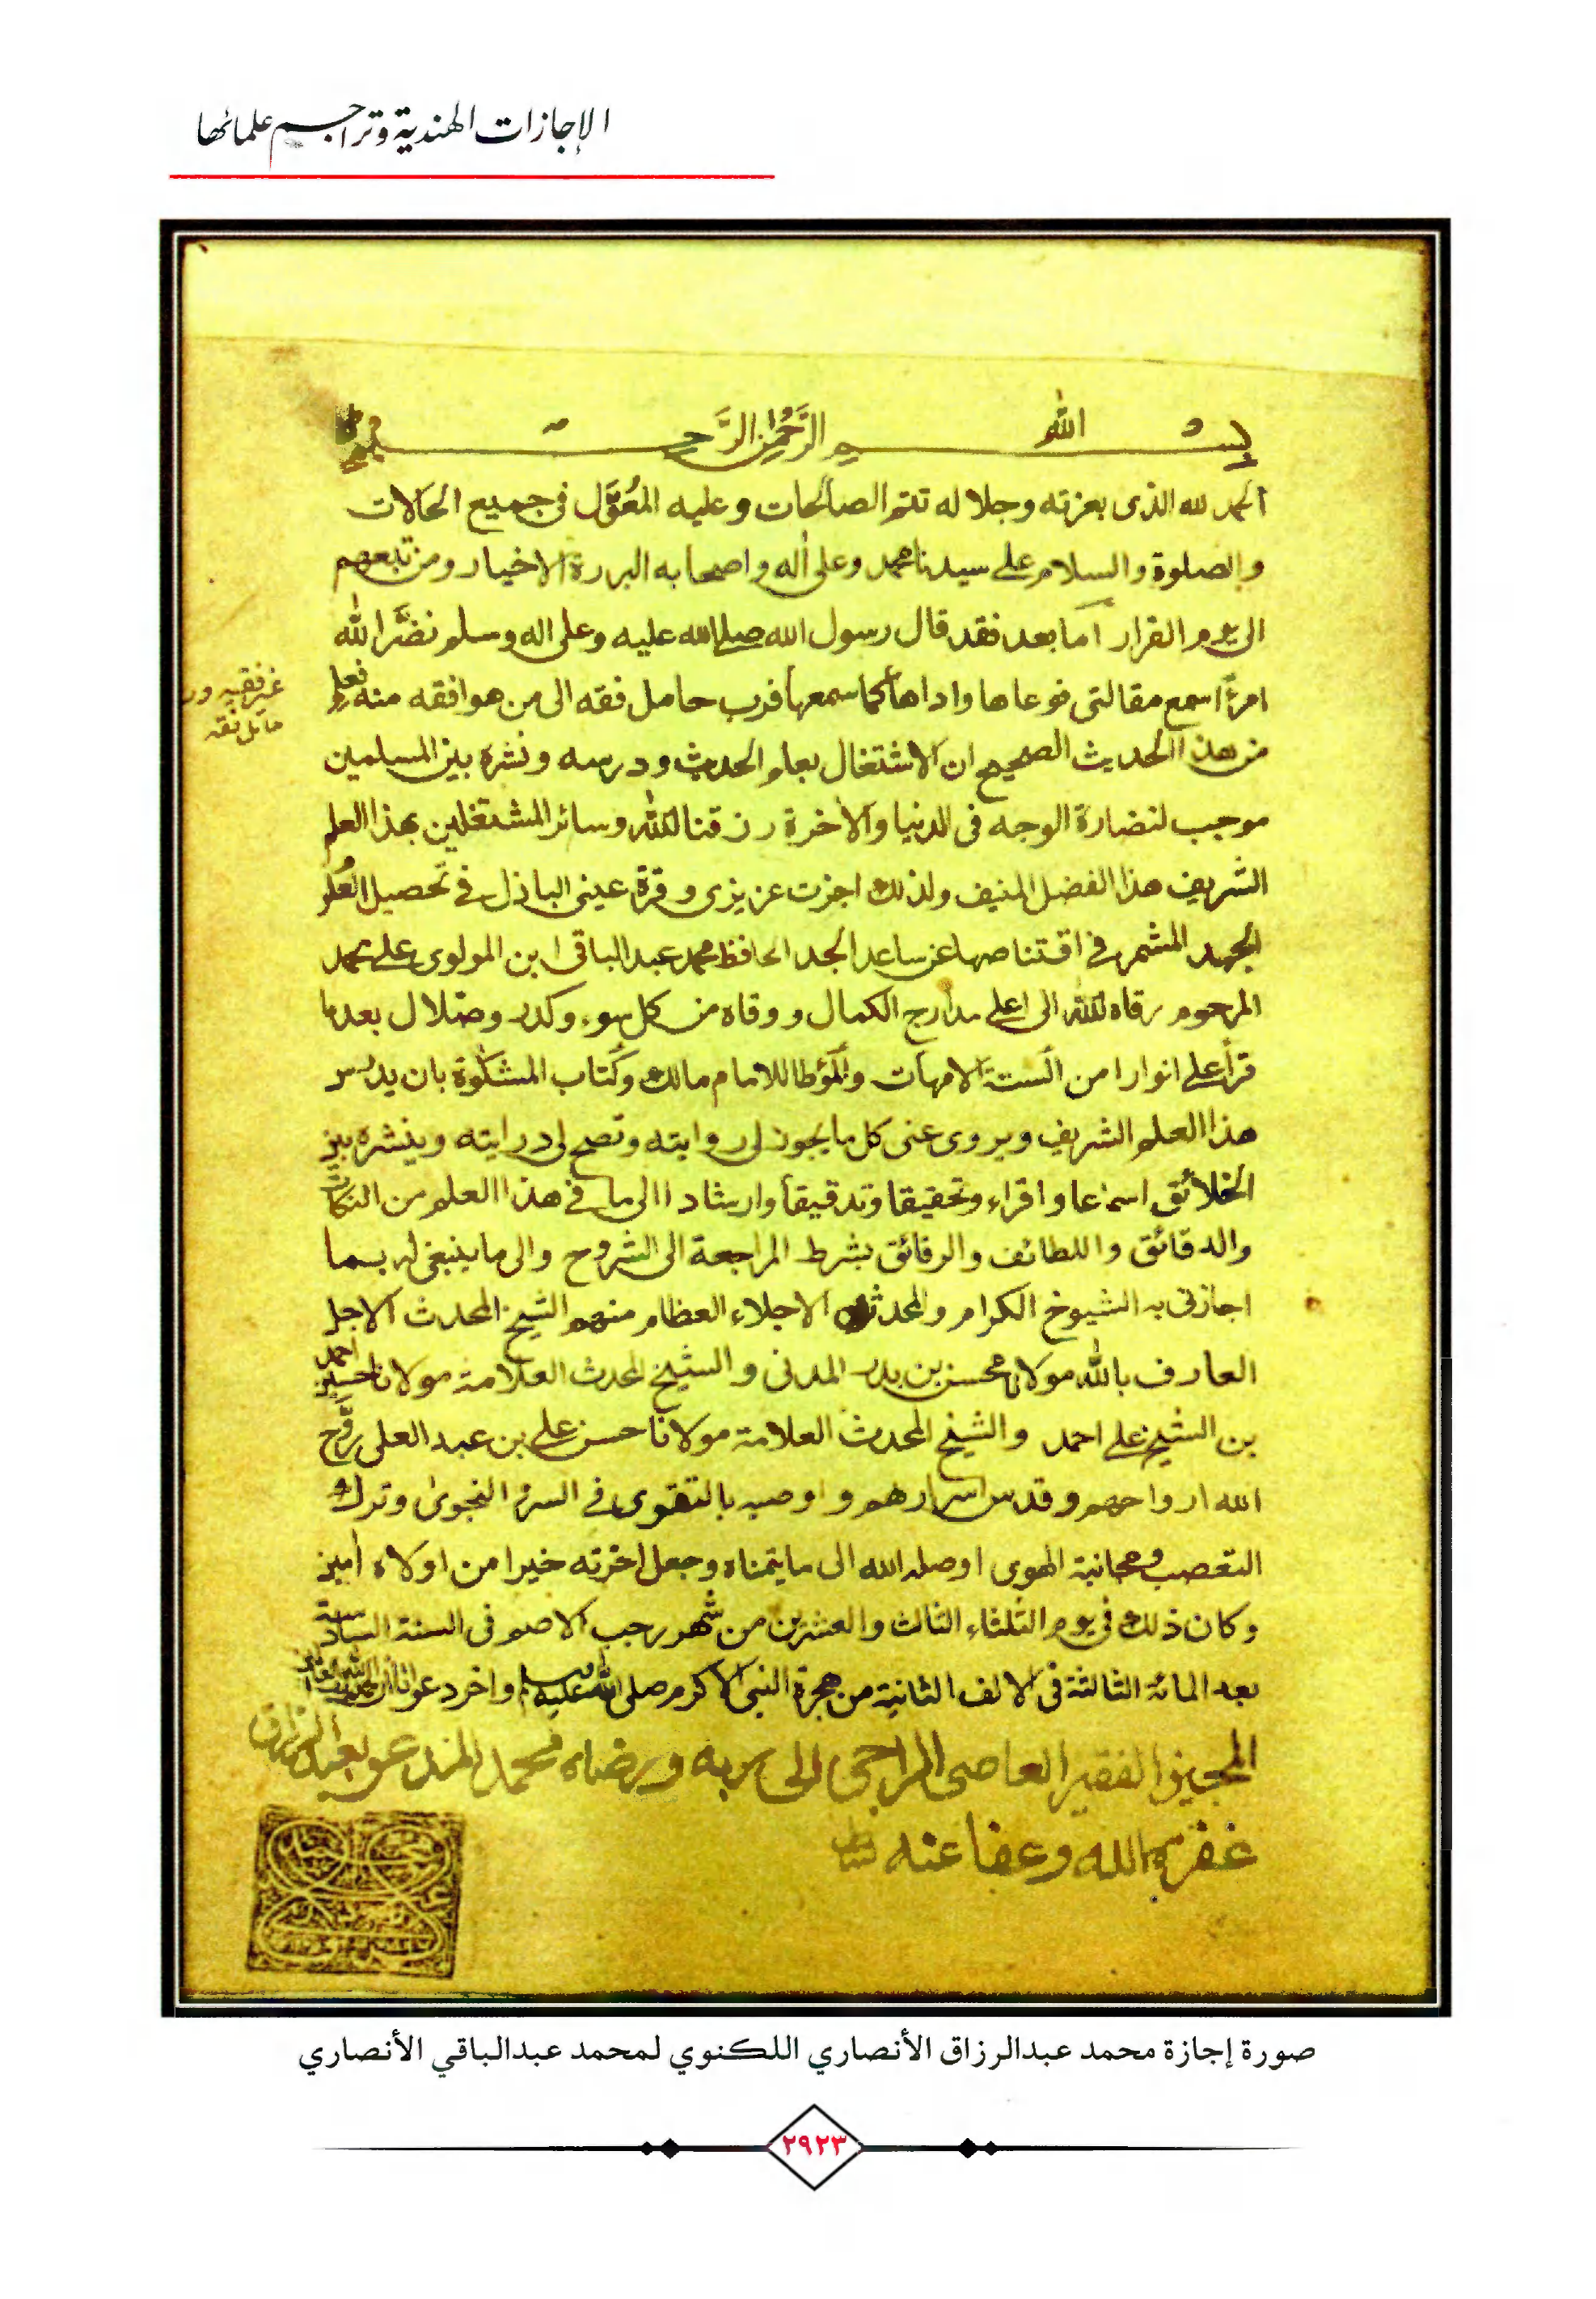 الإجازات الهندية وتراجم علمائها
بسم الله الرَّحْمٰن الرَّحيم
الحمد لله الذى بعزته وجلاله تتم الصالحات وعليه المُعَوَّل فى جميع الحالات
والصلوة والسلام على سيدنا محمد وعلى اله واصحابه البررة الاخيار ومن تبعهم
الى يوم القرار اما بعد فقد قال رسول الله صلى الله عليه وعلى اله وسلم نضَّر الله
امرءًا سمع مقالتى فوعاها واداها كما سمعها فرب حامل فقه الى من هو افقه منه فعلم
غير فقيه ورب
حامل فقه
من هذا الحديث الصحيح ان الاشتغال بعلم الحديث ودرسه ونشره بين المسلمين
موجب لنضارة الوجه فى الدنيا والاخرة رزقنا الله وسائر المشتغلين بهذا العلم
الشريف هذا الفضل المنيف ولذلك اجزت عزيزى وقرة عينى الباذل فى تحصيل العُلوم
الجهد المشمر فى اقتناصها عن ساعد الجد الحافظ محمد عبد الباقى ابن المولوى على محمد
المرحوم رقاه الله الى اعلى مدارج الكمال ووقاه من كل سوء وكدر وضلال بعد ما
قرأ على انوارا من الستة الامهات والمؤطا للامام مالك وكتاب المشكوة بان يدرس
هذا العلم الشريف ويروى عنى كل ما يجوز لى روايته وتصح لى درايته وينشره بين
الخلائق اسماعا واقراء وتحقيقا وتدقيقا وارشادا الى ما فى هذا العلم من النكات
والدقائق واللطائف والرقائق بشرط المراجعة الى الشروح والى ما ينبغى له بما
اجازنى به الشيوخ الكرام والمحدثون الاجلاء العظام منهم الشيخ المحدث الاجل
العارف بالله مولانا محسن بن بدر المدنى والشيخ المحدث العلامة مولانا حسين احمد
بن الشيخ على احمد والشيخ المحدث العلامة مولانا حسن على بن عبد العلى روَّح
الله ارواحهم وقدس اسرارهم واوصيه بالتقوى فى السر والنجوى وترك
التعصب ومجانبة الهوى اوصله الله الى ما يتمناه وجعل اخرته خيرا من اولاه امين
وكان ذلك فى يوم الثلثاء الثالث والعشرين من شهر رجب الاصم فى السنة السادسة
بعد المائة الثالثة فى الالف الثانية من هجرة النبى الاكرم صلى الله عليه وسلم واخر دعوانا ان الحمد لله رب العالمين
المجيز الفقير العاصى الراجى الى ربه ورضاه محمد المدعو بعبد الرزاق
غفر له الله وعفا عنه
صورة إجازة محمد عبدالرزاق الأنصاري اللكنوي لمحمد عبدالباقي الأنصاري
٢٩٢٣